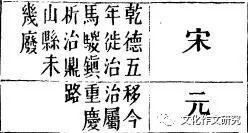 宋
乾德五
年徙治
馬駿鎮
析治鼎
山縣未
幾廢
元
移今
治屬
重慶
路
文化作文研究